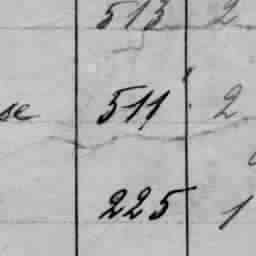 513 2
se 511 2
225 1